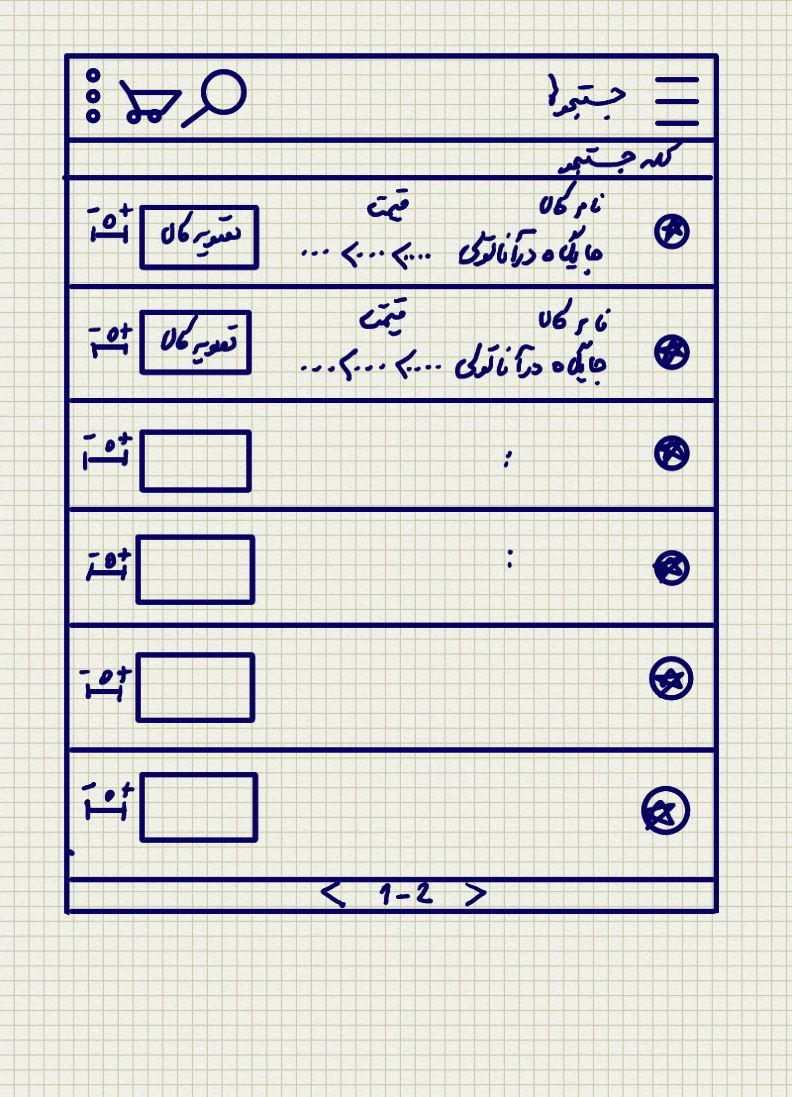 جستجو {
کلمه جستجو
نام کالا قیمت
جایگاه در آناتومی ...>...>...
تصویر کالا
+ 0 -
نام کالا قیمت
جایگاه در آناتومی ...>...>...
تصویر کالا
+ 0 -
:
+ 0 -
:
+ 0 -
+ 0 -
+ 0 -
< 1-2 >